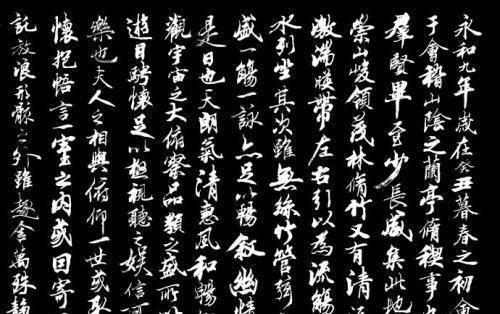 永和九年歲在癸丑暮春之初會
于會稽山陰之蘭亭脩禊事也
羣賢畢至少長咸集此地
崇山峻領茂林脩竹又有清流
激湍暎帶左右引以為流觴
水列坐其次雖無絲竹管弦
盛一觴一詠亦足以暢敘幽情
是日也天朗氣清惠風和暢
觀宇宙之大俯察品類之盛所以
遊目騁懷足以極視聽之娛信可
樂也夫人之相與俯仰一世或取
懷抱悟言一室之內或因寄
託放浪形骸之外雖趣舍萬殊靜